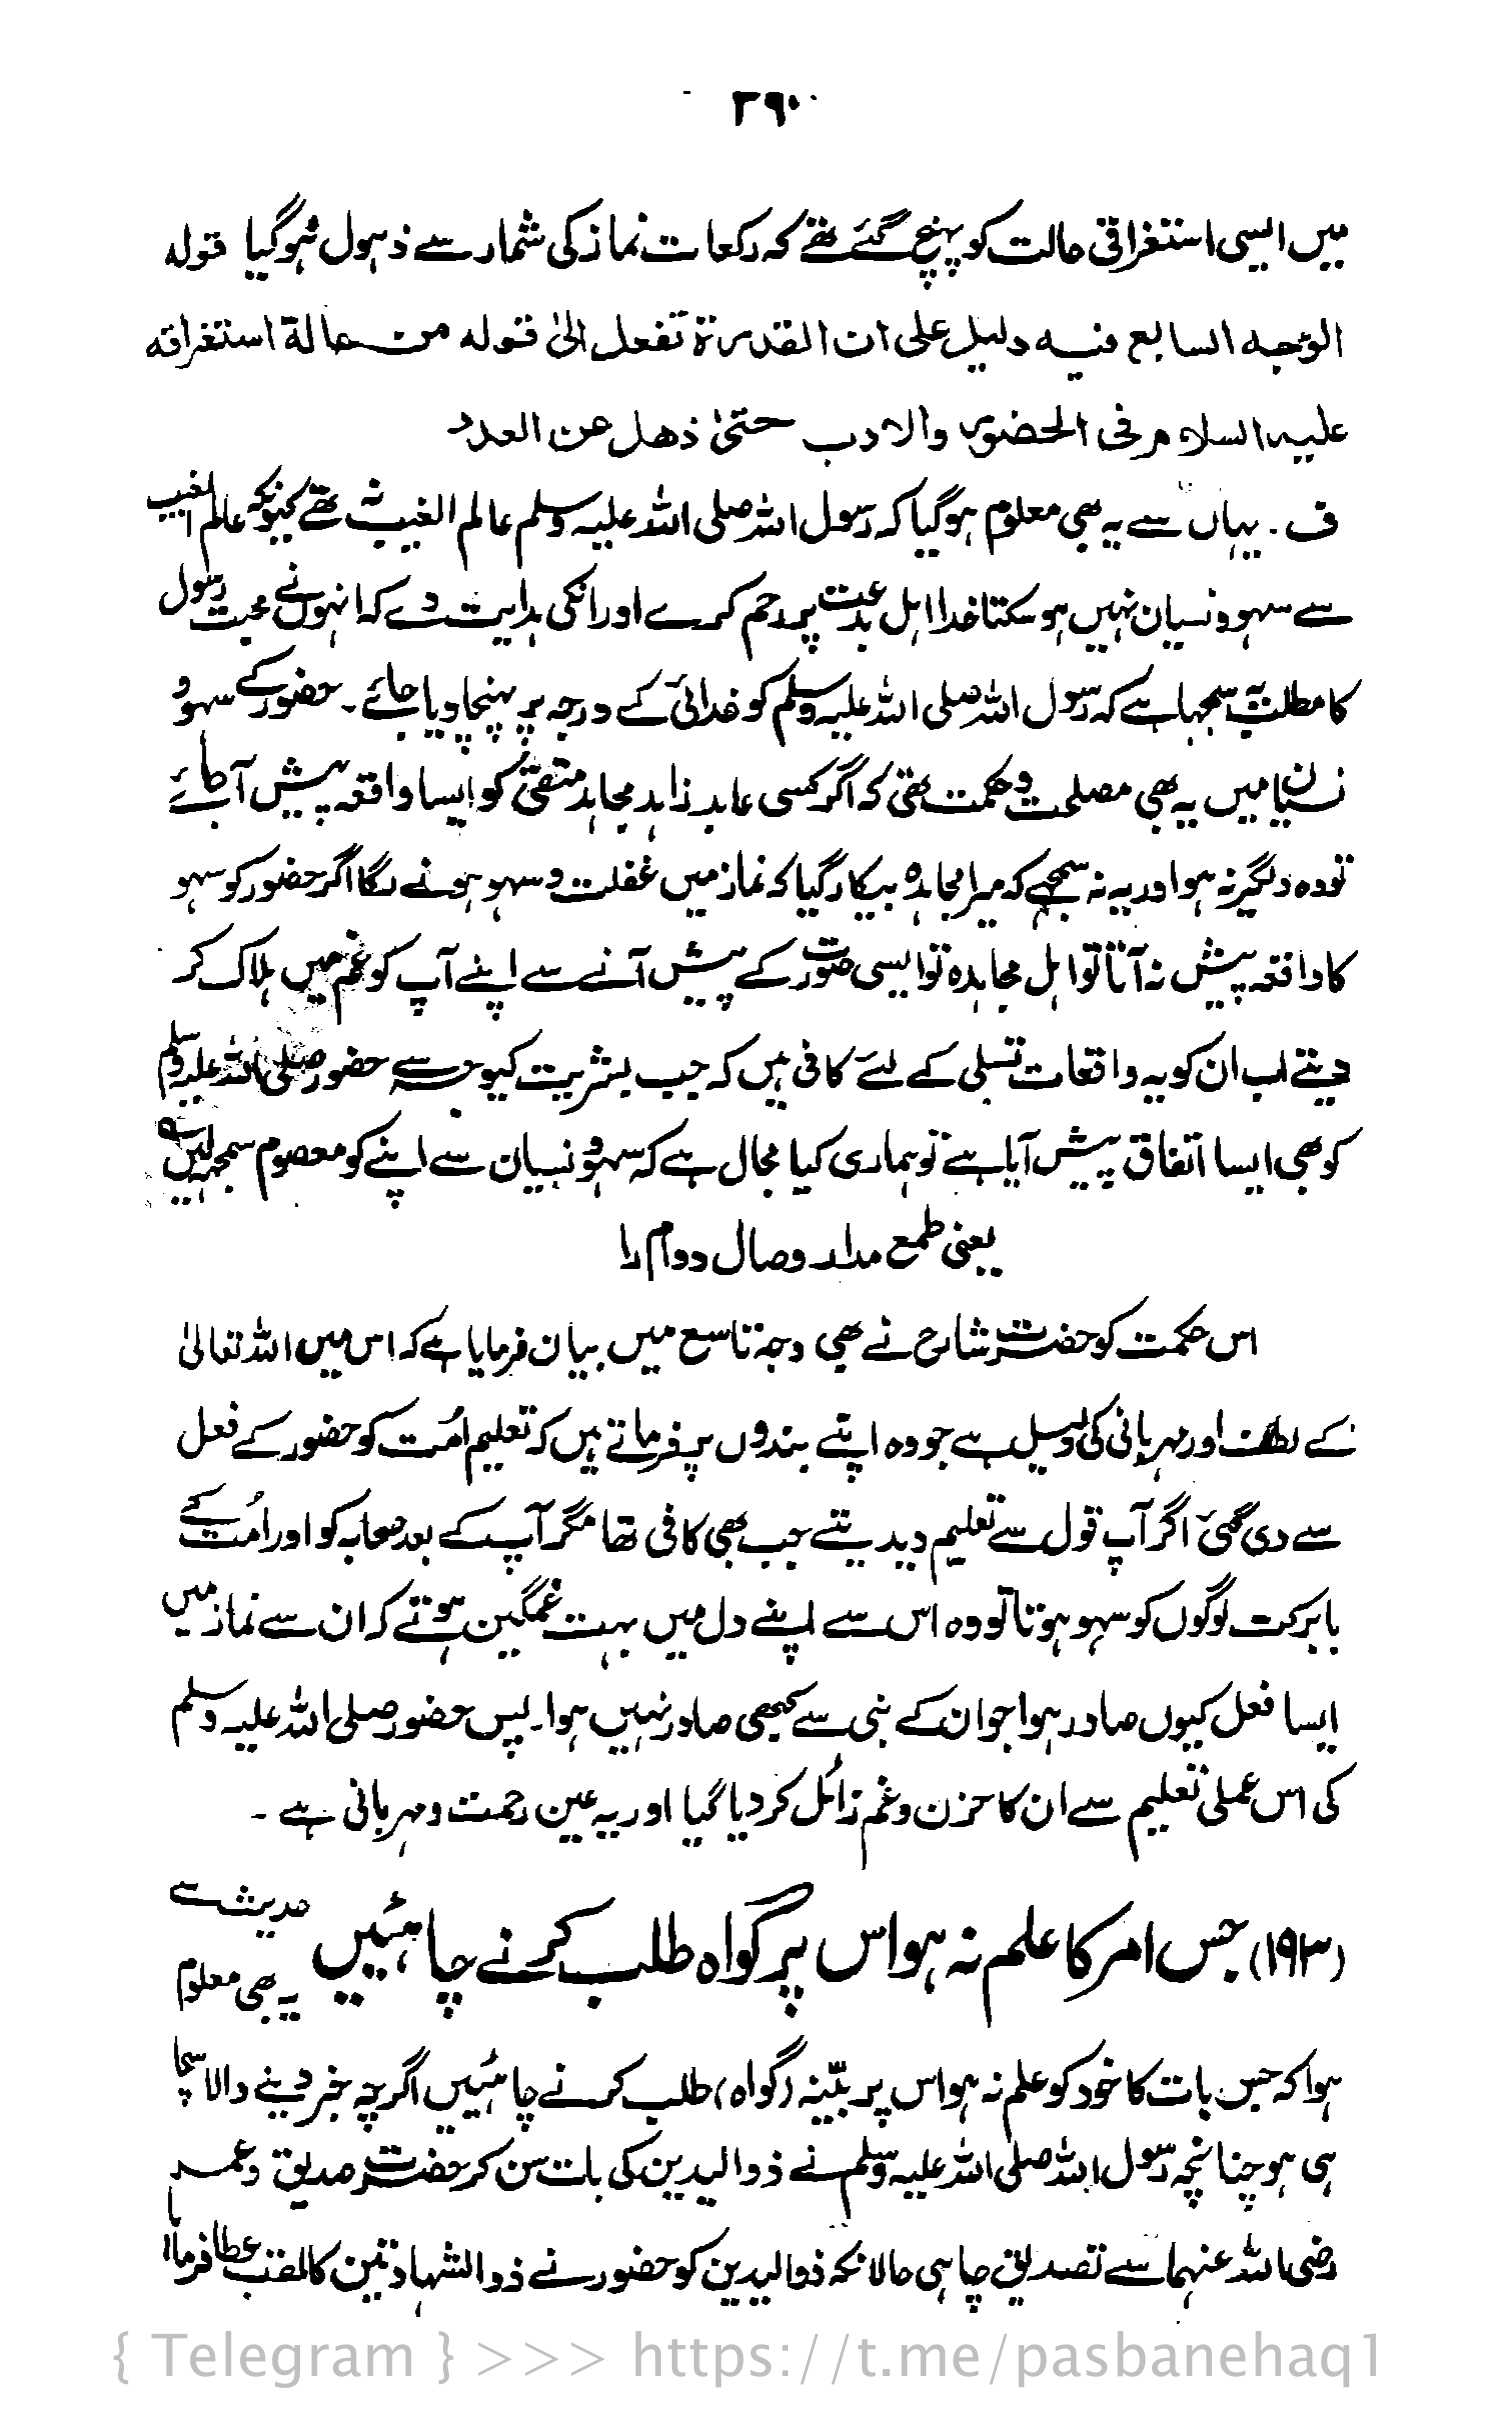 ۲۹۰
میں ایسی استغراقی حالت کو پہنچ گئے تھے کہ رکعات نماز کی شمار سے ذہول ہوگیا قولہ
الوجہ السابع فیہ دلیل علی ان القدرۃ تفعل الیٰ قولہ من حالة استغراقہ
علیہ السلام فی الحضور والادب حتیٰ ذھل عن العدد
ف ۔ یہاں سے یہ بھی معلوم ہوگیا کہ رسول اللہ صلی اللہ علیہ وسلم عالم الغیب نہ تھے کیونکہ عالم الغیب
سے سہو و نسیان نہیں ہوسکتا خدا اہل بدعت پر رحم کرے اور انکی ہدایت دے کہ انہوں نے محبت رسول
کا مطلب یہ سمجہا ہے کہ رسول اللہ صلی اللہ علیہ وسلم کو خدائی کے درجہ پر پہنچا دیا جائے ۔ حضور کے سہو و
نسیان میں یہ بھی مصلحت و حکمت تھی کہ اگر کسی عابد زاہد مجاہد متقی کو ایسا واقعہ پیش آجائے
تو وہ دلگیر نہ ہو اور یہ نہ سمجھے کہ میرا مجاہدہ بیکار گیا کہ نماز میں غفلت و سہو ہونے لگا اگر حضور کو سہو
کا واقعہ پیش نہ آتا تو اہل مجاہدہ تو ایسی صورت کے پیش آنے سے اپنے آپ کو غم میں ہلاک کر
دیتے اب ان کو یہ واقعات تسلی کے لئے کافی ہیں کہ جب بشریت کیوجہ سے حضور صلی اللہ علیہ وسلم
کو بھی ایسا اتفاق پیش آیا ہے تو ہماری کیا مجال ہے کہ سہو و نسیان سے اپنے کو معصوم سمجہ لیں
یعنی طمع مدار وصال دوام را
اس حکمت کو حضرت شارح نے بھی وجہ تاسع میں بیان فرمایا ہے کہ اس میں اللہ تعالیٰ
کے لطف اور مہربانی کی دلیل ہے جو وہ اپنے بندوں پر فرماتے ہیں کہ تعلیم امت کو حضور کے فعل
سے دی گئی اگر آپ قول سے تعلیم دیدیتے جب بھی کافی تھا مگر آپ کے بعد صحابہ کو اور امت کے
بابرکت لوگوں کو سہو ہوتا تو وہ اس سے اپنے دل میں بہت غمگین ہوتے کہ ان سے نماز میں
ایسا فعل کیوں صادر ہوا جو ان کے نبی سے کبھی صادر نہیں ہوا ۔ پس حضور صلی اللہ علیہ وسلم
کی اس عملی تعلیم سے ان کا حزن و غم زائل کر دیا گیا اور یہ عین رحمت و مہربانی ہے ۔
(۱۹۳) جس امر کا علم نہ ہو اس پر گواہ طلب کرنے چاہئیں حدیث سے
یہ بھی معلوم
ہوا کہ جس بات کا خود کو علم نہ ہو اس پر بیّنہ (گواہ) طلب کرنے چاہئیں اگرچہ خبر دینے والا سچا
ہی ہو چنانچہ رسول اللہ صلی اللہ علیہ وسلم نے ذوالیدین کی بات سن کر حضرت صدیق و عمر
رضی اللہ عنہما سے تصدیق چاہی حالانکہ ذوالیدین کو حضور نے ذوالشہادتین کا لقب عطا فرمایا
{ Telegram } >>> https://t.me/pasbanehaq1